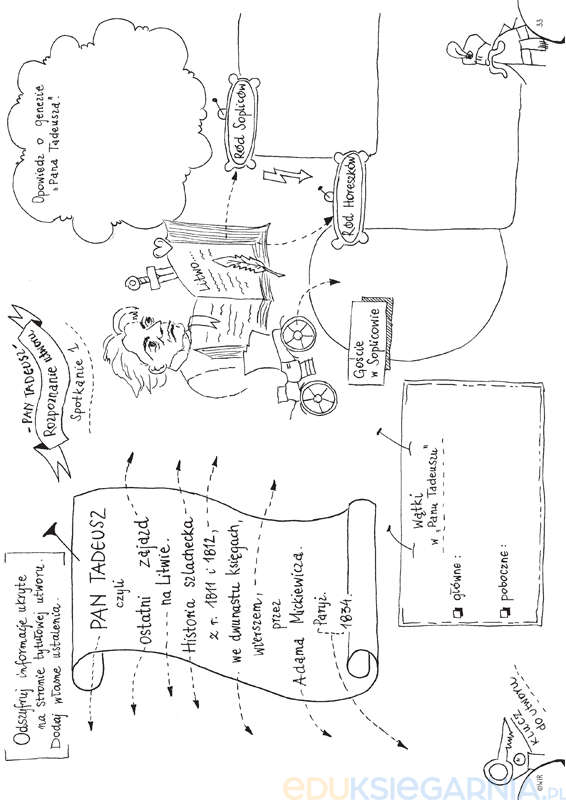 - PAN TADEUSZ -
Rozpoznanie utworu
Spotkanie 1
Odszyfruj informacje ukryte
na stronie tytułowej utworu.
Dodaj własne ustalenia.
PAN TADEUSZ
czyli
Ostatni zajazd
na Litwie.
Historia szlachecka
z r. 1811 i 1812,
we dwunastu księgach,
wierszem,
przez
Adama Mickiewicza.
Paryż.
1834.
Opowiedz o genezie
„Pana Tadeusza".
Litwo...
Ród Sopliców
Ród Horeszków
Goście
w Soplicowie
Wątki
w „Panu Tadeuszu"
główne:
poboczne:
KLUCZ
do utworu
©WIR
33
eDUKSIEGARNIA.PL